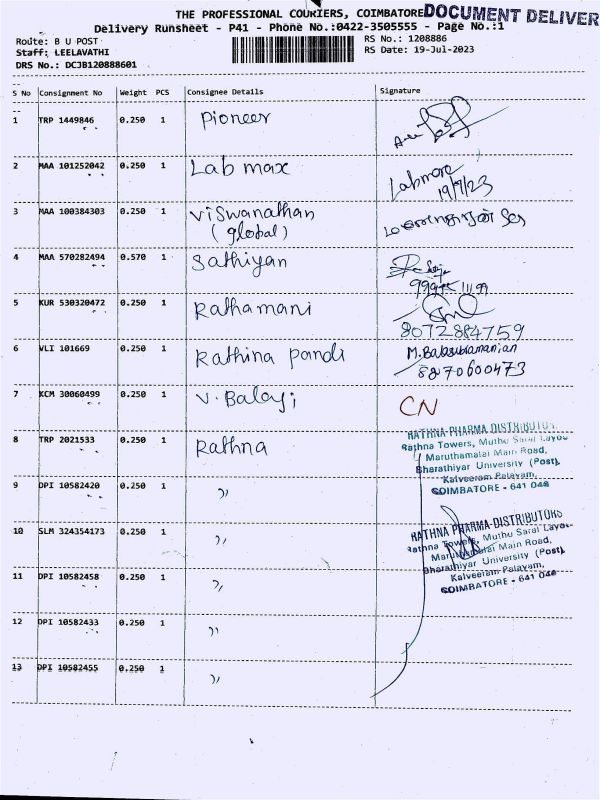 THE PROFESSIONAL COURIERS, COIMBATORE DOCUMENT DELIVER
Delivery Runsheet - P41 - Phone No.:0422-3505555 - Page No.:1
Route: B U POST
Staff: LEELAVATHI
DRS No.: DCJB120888601
RS No.: 1208886
RS Date: 19-Jul-2023
S No Consignment No Weight PCS Consignee Details Signature
1 TRP 1449846 0.250 1 Pioneer
2 MAA 101252042 0.250 1 Lab max Labmax
19/7/23
3 MAA 100384303 0.250 1 Viswanathan
(global)
4 MAA 570282494 0.570 1 Sathiyan
5 KUR 530320472 0.250 1 Rathamani
8072884759
6 VLI 101669 0.250 1 Rathina pandi M.Balasubramanian
8870600473
7 KCM 30060499 0.250 1 V. Balaji CN
8 TRP 2021533 0.250 1 Rathna
RATHNA PHARMA DISTRIBUTORS
Rathna Towers, Muthu Saral Layou
Maruthamalai Main Road,
Bharathiyar University (Post),
Kalveeram Palayam,
COIMBATORE - 641 046
9 DPI 10582420 0.250 1 ,,
10 SLM 324354173 0.250 1 ,,
RATHNA PHARMA DISTRIBUTORS
Rathna Towers, Muthu Saral Layou
Maruthamalai Main Road,
Bharathiyar University (Post),
Kalveeram Palayam,
COIMBATORE - 641 046
11 DPI 10582458 0.250 1 ,,
12 DPI 10582433 0.250 1 ,,
13 DPI 10582455 0.250 1 ,,